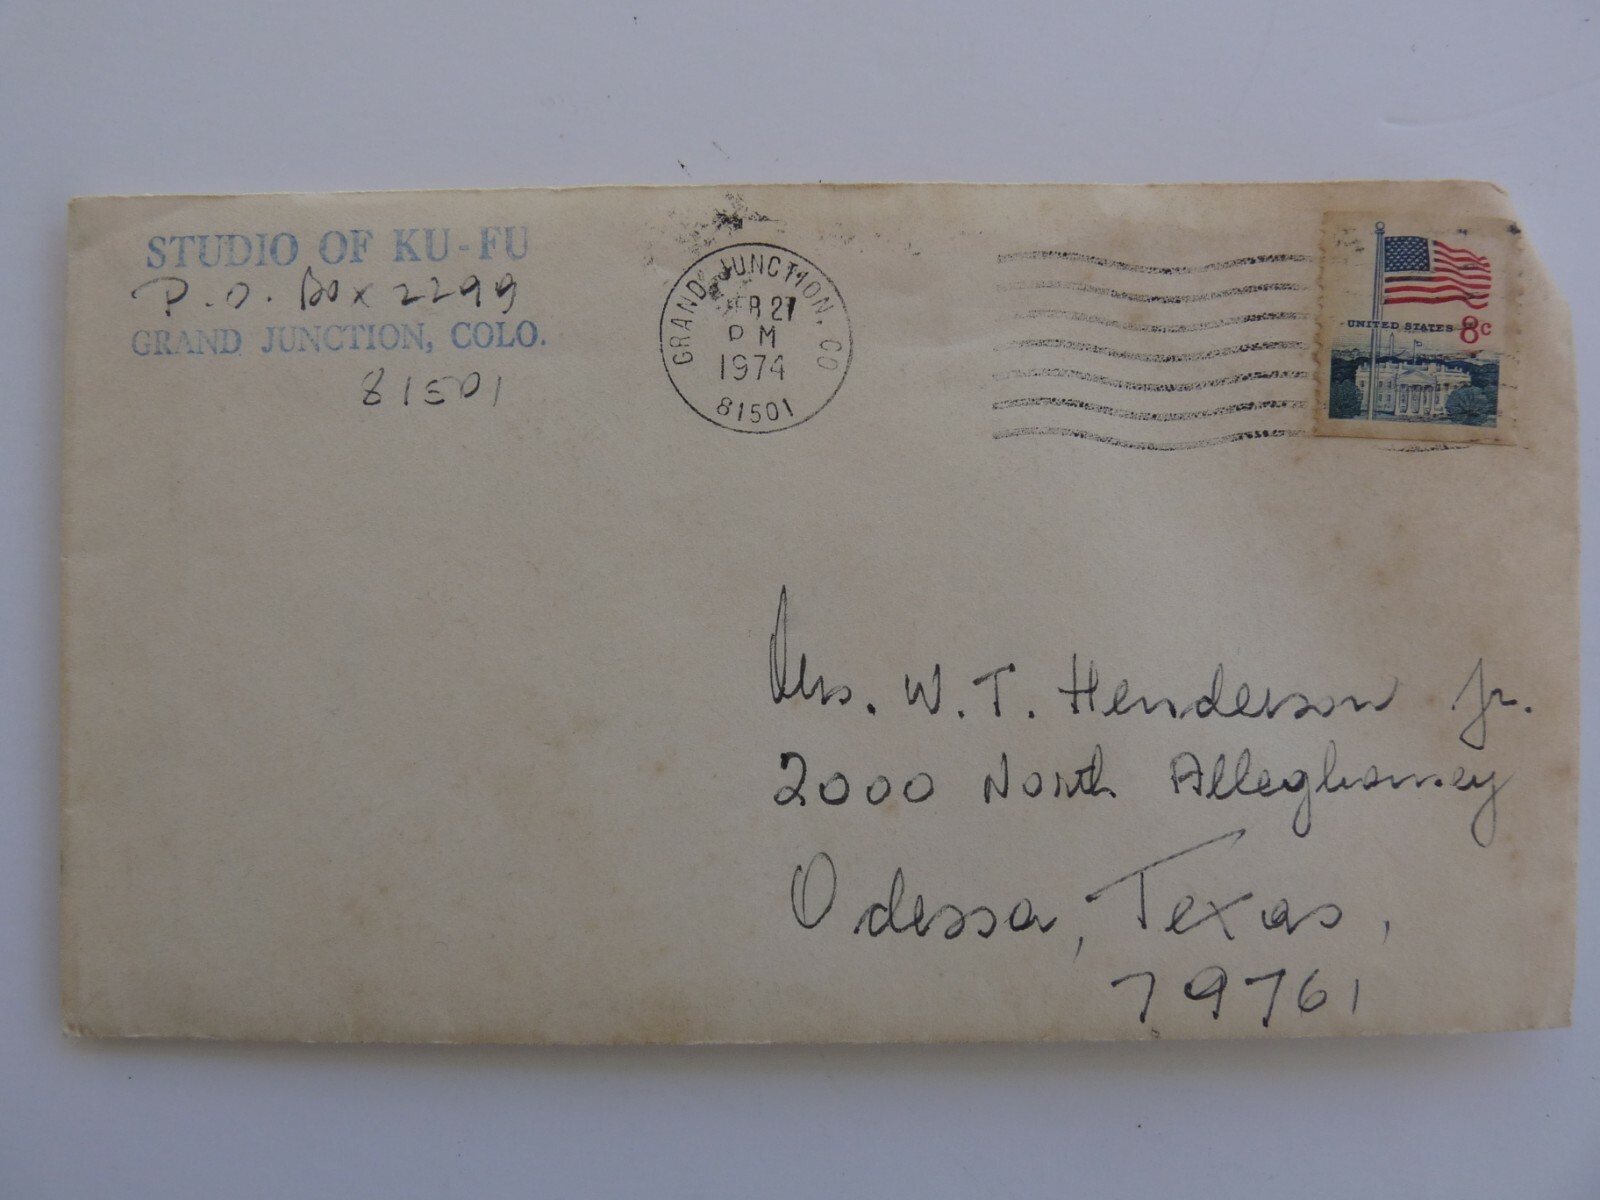 STUDIO OF KU-FU
P.O. Box 2299
GRAND JUNCTION, COLO.
81501
GRAND JUNCTION. CO
FEB 27
PM
1974
81501
UNITED STATES 8c
Mrs. W. T. Henderson Jr.
2000 North Alleghaney
Odessa, Texas,
79761